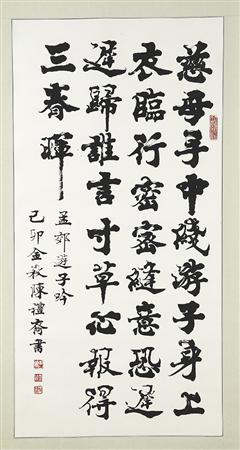 慈母手中綫游子身上
衣臨行密密縫意恐遲
遲歸誰言寸草心報得
三春暉
孟郊遊子吟
己卯金秋陳禮書